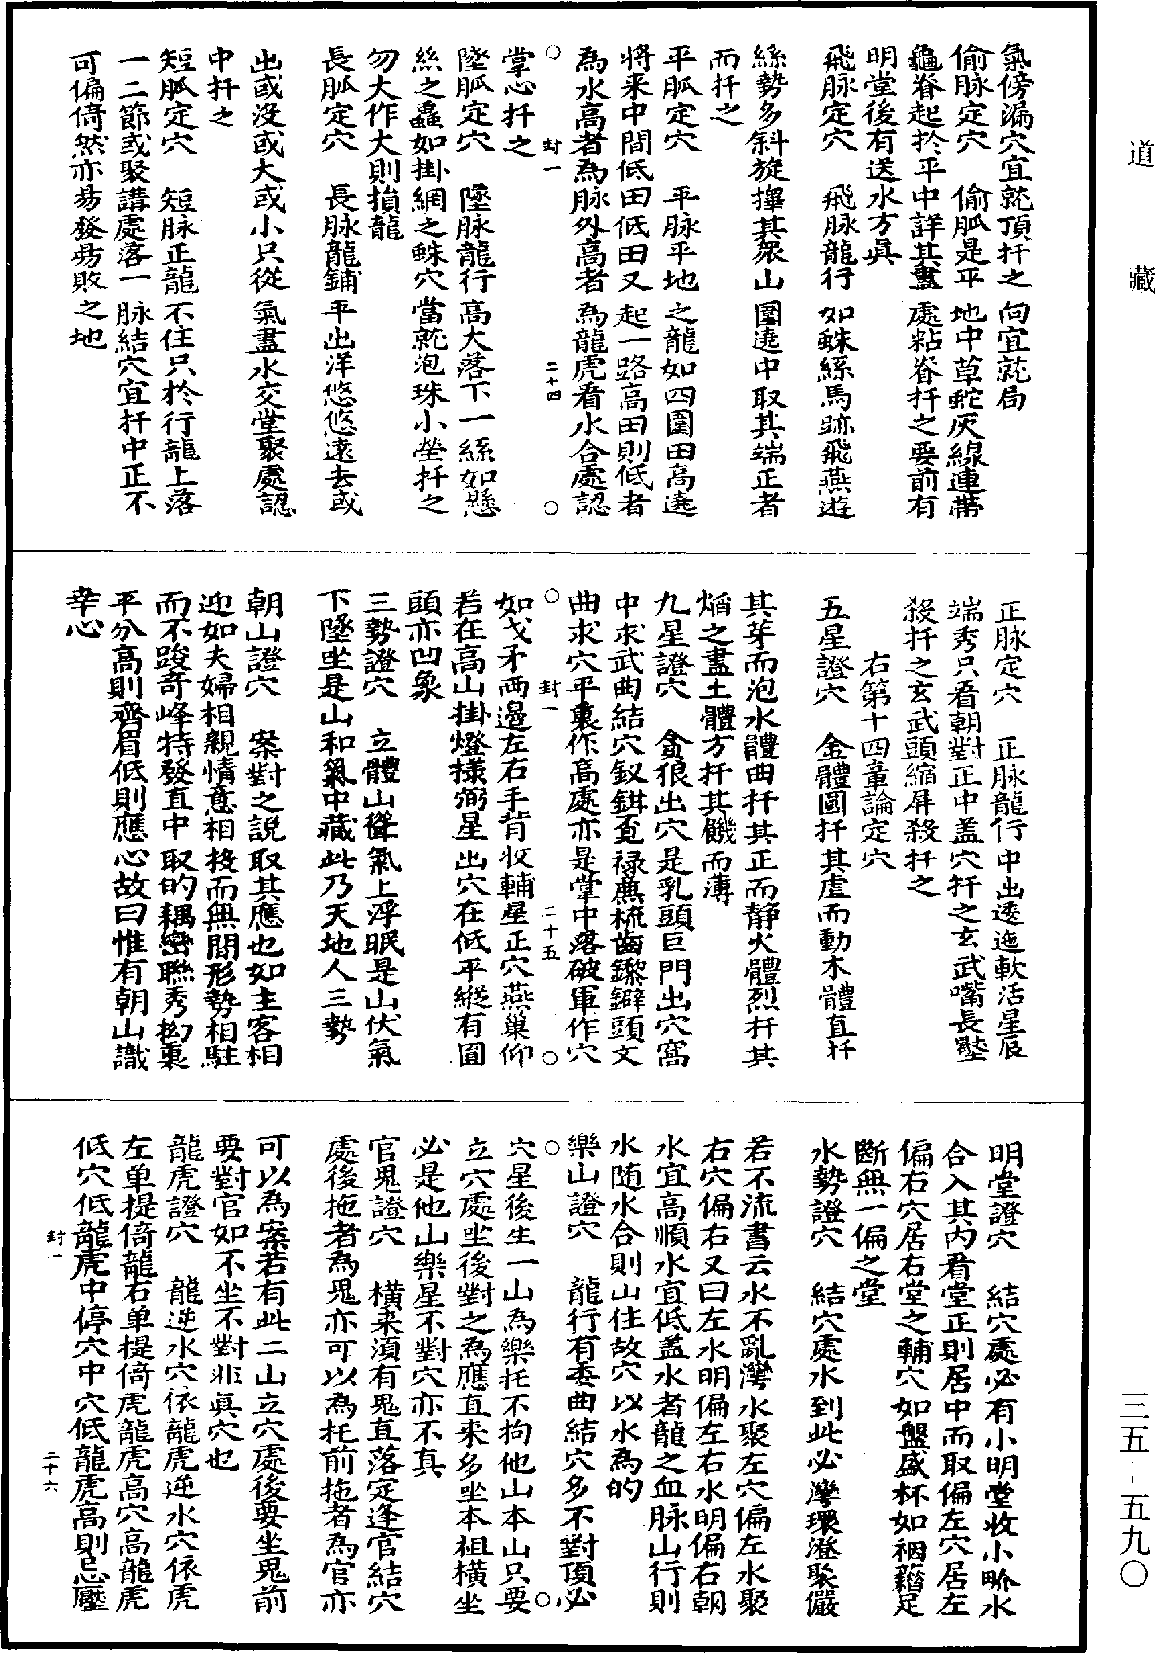 道藏
三五·五九〇
氣傍漏穴宜就頂扦之向宜就局
偷脉定穴　偷脉是平地中草蛇灰線連帶
龜脊起於平中詳其盡處粘脊扦之要前有
明堂後有送水方眞
飛脉定穴　飛脉龍行如蛛絲馬跡飛燕遊
絲勢多斜旋擇其衆山圍遶中取其端正者
而扦之
平脉定穴　平脉平地之龍如四圍田高遶
將來中間低田低田又起一路高田則低者
為水高者為脉外高者為龍虎看水合處認
○　封一　二十四　○
掌心扦之
墜脉定穴　墜脉龍行高大落下一絲如懸
絲之蟲如掛網之蛛穴當就泡珠小坐扦之
勿大作大則損龍
長脉定穴　長脉龍鋪平出洋悠悠遠去或
出或没或大或小只從氣盡水交堂聚處認
中扦之
短脉定穴　短脉正龍不住只於行龍上落
一二節或聚講處落一脉結穴宜扦中正不
可偏倚然亦易發易敗之地
正脉定穴　正脉龍行中出逶迤軟活星辰
端秀只看朝對正中盖穴扦之玄武嘴長墜
殺扦之玄武頭縮屏殺扦之
右第十四章論定穴
五星證穴　金體圓扦其虛而動木體直扦
其芽而泡水體曲扦其正而静火體烈扦其
焰之盡土體方扦其饑而薄
九星證穴　貪狼出穴是乳頭巨門出穴窩
中求武曲結穴釵鉗覔禄廉梳齒鑗鐴頭文
曲求穴平裏作高處亦是掌中落破軍作穴
○　封一　二十五　○
如戈矛兩邊左右手背收輔星正穴燕巢仰
若在高山掛燈樣弼星出穴在低平縱有圓
頭亦凹象
三勢證穴　立體山聳氣上浮眠是山伏氣
下墜坐是山和氣中藏此乃天地人三勢
朝山證穴　案對之說取其應也如主客相
迎如夫婦相親情意相投而無間形勢相駐
而不踆奇峰特發直中取的耦巒聯秀拗裏
平分高則齊眉低則應心故曰惟有朝山識
幸心
明堂證穴　結穴處必有小明堂收小畍水
合入其内看堂正則居中而取偏左穴居左
偏右穴居右堂之輔穴如盤盛杯如裀藉足
斷無一偏之堂
水勢證穴　結穴處水到此必灣環澄聚嚴
若不流書云水不亂灣水聚左穴偏左水聚
右穴偏右又曰左水明偏左右水明偏右朝
水宜高順水宜低盖水者龍之血脉山行則
水隨水合則山住故穴以水為的
樂山證穴　龍行有委曲結穴多不對頂必
○　○
穴星後生一山為樂托不拘他山本山只要
立穴處坐後對之為應直来多坐本祖横坐
必是他山樂星不對穴亦不真
官鬼證穴　横来須有鬼直落定逢官結穴
處後拖者為鬼亦可以為托前拖者為官亦
可以為案若有此二山立穴處後要坐鬼前
要對官如不坐不對非眞穴也
龍虎證穴　龍逆水穴依龍虎逆水穴依虎
左單提倚龍右單提倚虎龍虎高穴高龍虎
低穴低龍虎中停穴中穴低龍虎高則忌壓
封一　二十六